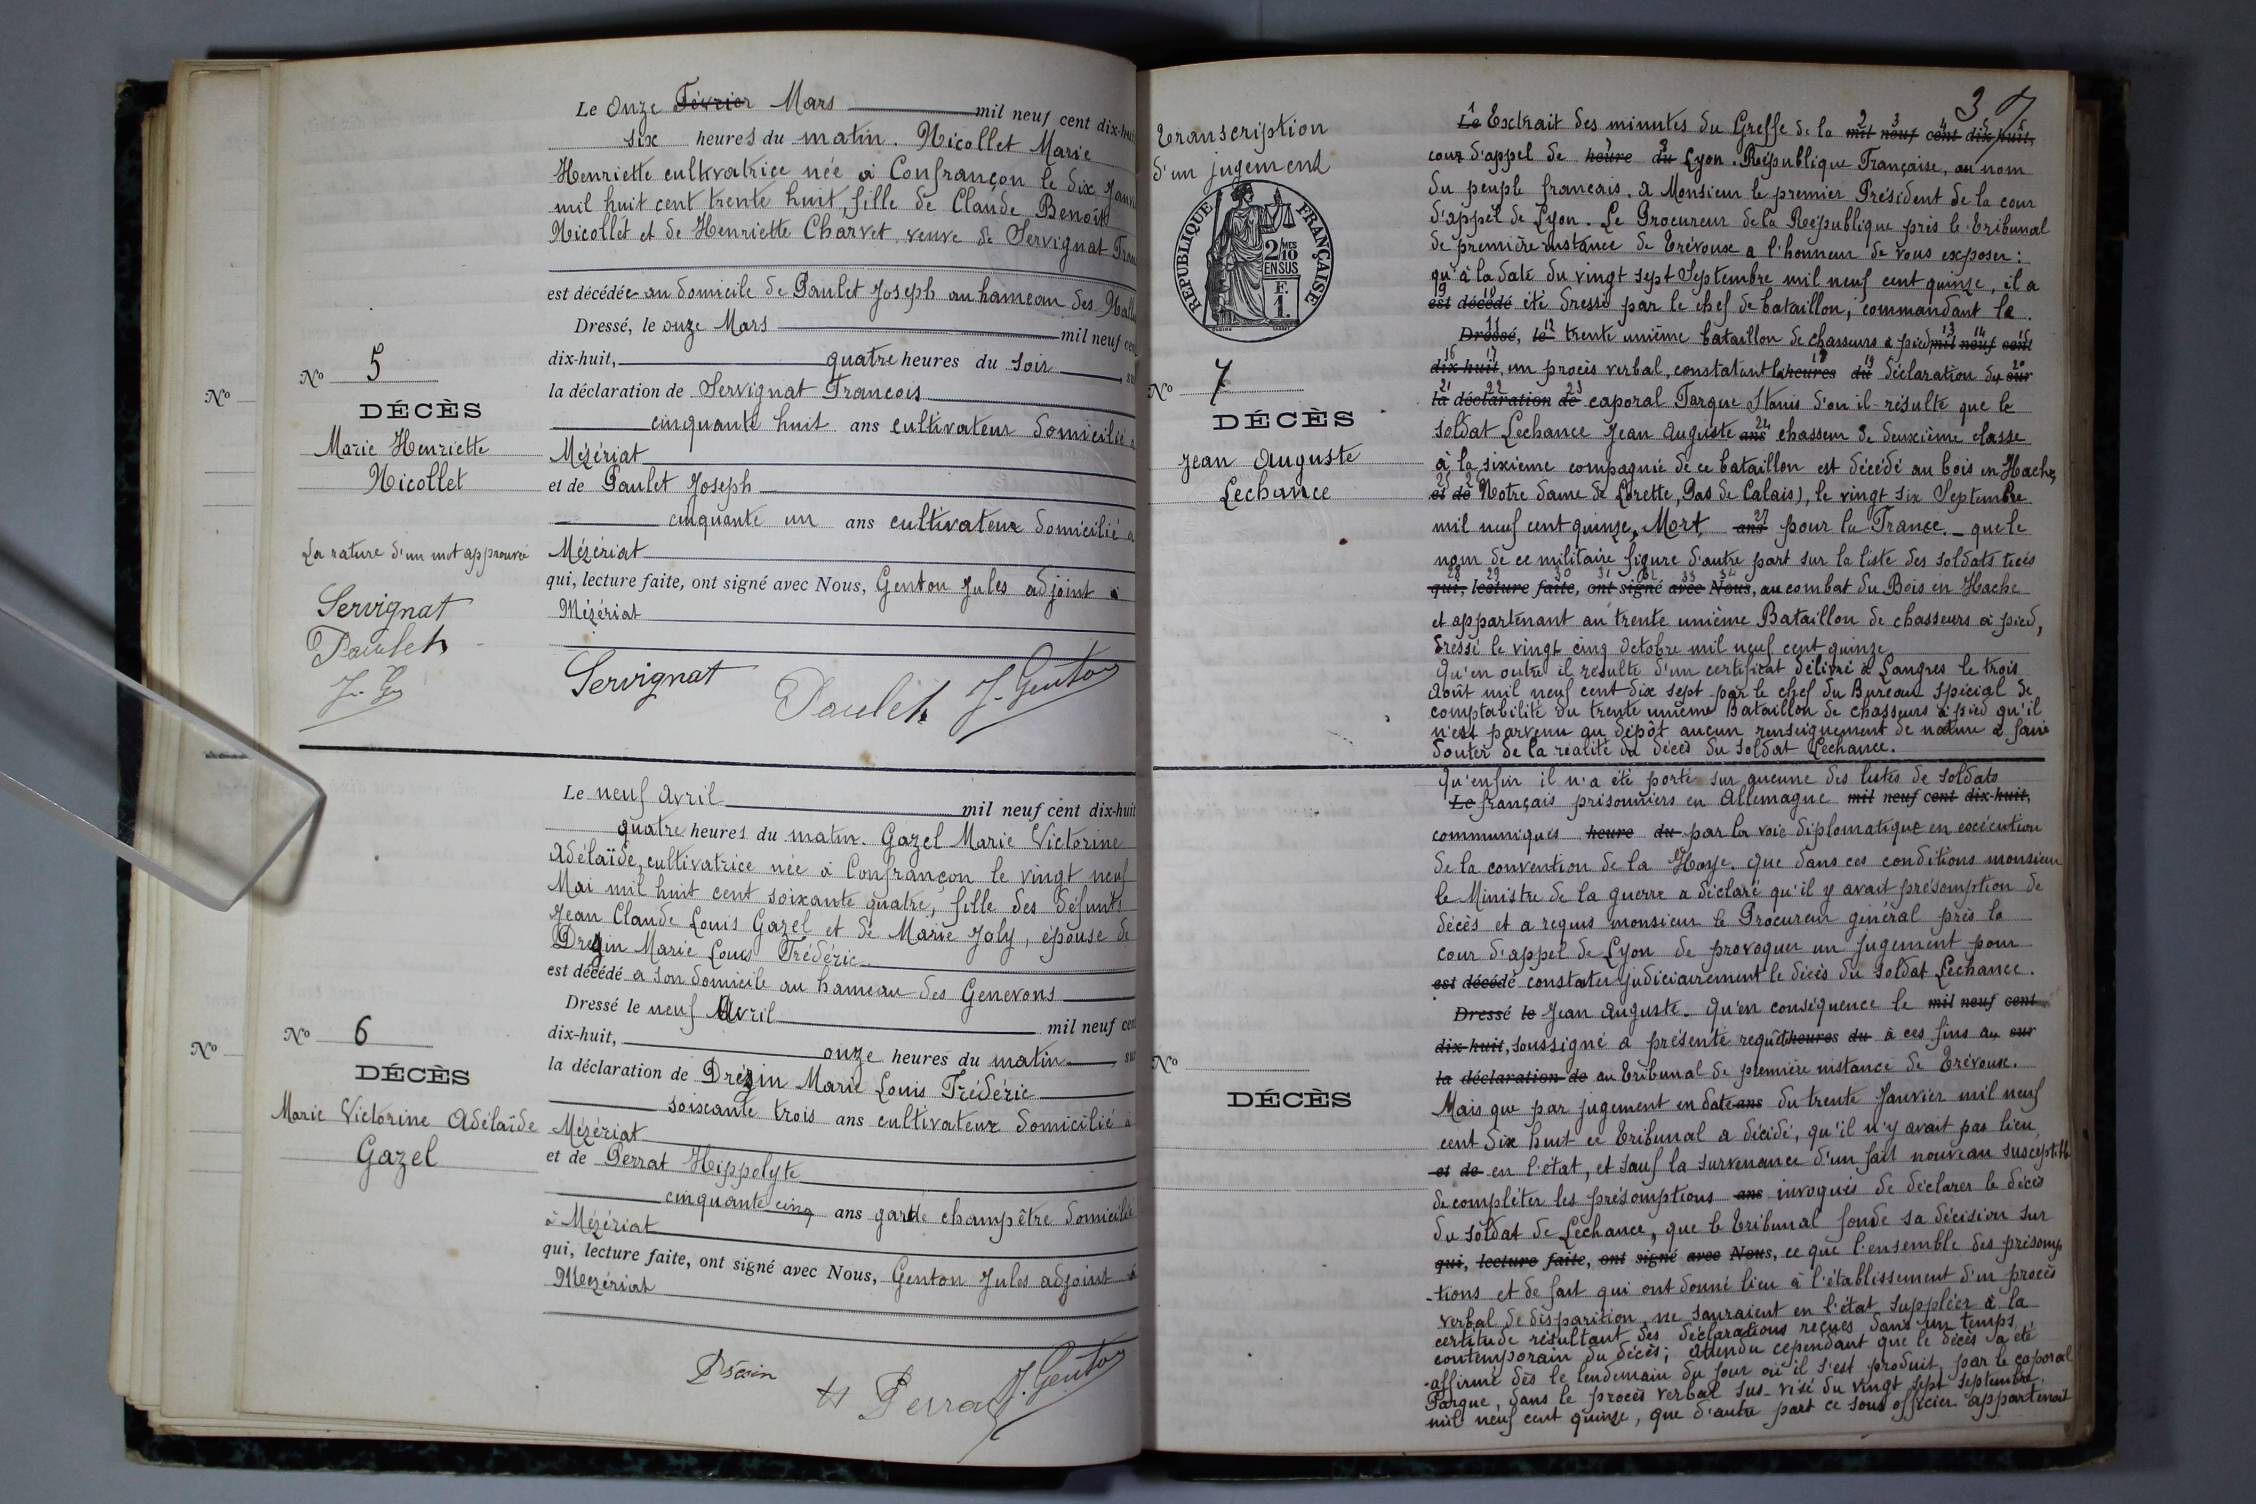 Le onze Février Mars mil neuf cent dix-huit
six heures du matin. Nicollet Marie
Henriette cultivatrice née à Confrançon le dix Janvi
mil huit cent trente huit, fille de Claude Benoît
Nicollet et de Henriette Charvet, veuve de Servignat Fran
est décédée au domicile de Paulet Joseph au hameau des
Dressé, le onze Mars mil neuf cen
dix-huit, quatre heures du soir, su
la déclaration de Servignat Francois
cinquante huit ans cultivateur domicilié à
Mézériat
et de Paulet Joseph
cinquante un ans cultivateur domicilié à
Mézériat
qui, lecture faite, ont signé avec Nous, Genton Jules adjoint à
Mézériat
Servignat Paulet J. Genton
No 5
DÉCÈS
Marie Henriette
Nicollet
La rature d'un mot approuvée
Servignat
Paulet
J. G
No
Le neuf Avril mil neuf cent dix-huit
quatre heures du matin. Gazel Marie Victorine
Adélaïde, cultivatrice née à Confrançon le vingt neuf
Mai mil huit cent soixante quatre, fille des défunts
Jean Claude Louis Gazel et de Marie Joly, épouse de
Drézin Marie Louis Frédéric
est décédé a son domicile au hameau des Genevons
Dressé le neuf Avril mil neuf cen
dix-huit, onze heures du matin, su
la déclaration de Drézin Marie Louis Frédéric
soixante trois ans cultivateur domicilié à
Mézériat
et de Perrat Hippolyte
cinquante cinq ans garde champêtre domicilié
à Mézériat
qui, lecture faite, ont signé avec Nous, Genton Jules adjoint à
Mézériat
Drésin H Perrat J. Genton
No 6
DÉCÈS
Marie Victorine Adélaïde
Gazel
No
3
Transcription
d'un jugement
RÉPUBLIQUE FRANÇAISE
2/10 MES
EN SUS
F.
1.
No 7
DÉCÈS
Jean Auguste
Lechance
Le Extrait des minutes du Greffe de la mil neuf cent dix-huit,
cour d'appel de heure du Lyon. République Française, au nom
du peuple francais. A Monsieur le premier Président de la cour
d'appel de Lyon. Le Procureur de la République près le Tribunal
de première instance de Trévoux a l'honneur de vous exposer :
qu'à la date du vingt sept Septembre mil neuf cent quinze, il a
est décédé été dressé par le chef de bataillon, commandant le
Dressé, le trente unième bataillon de chasseurs à pied mil neuf cent
dix-huit, un procès verbal, constatant la heures du déclaration du sur
la déclaration de caporal Farque Stanis d'où il résulte que le
soldat Lechance Jean Auguste ans chasseur de deuxième classe
à la sixième compagnie de ce bataillon est décédé au bois en Hache,
et de Notre Dame de Lorette, Pas de Calais), le vingt six Septembre
mil neuf cent quinze, Mort ans pour la France. _ que le
nom de ce militaire figure d'autre part sur la liste des soldats tués
qui, lecture faite, ont signé avec Nous, au combat du Bois en Hache
et appartenant au trente unième Bataillon de chasseurs à pied,
dressé le vingt cinq Octobre mil neuf cent quinze
Qu'en outre il résulte d'un certificat délivré à Langres le trois
Août mil neuf cent dix sept par le chef du Bureau spécial de
comptabilité du trente unième Bataillon de chasseurs à pied qu'il
n'est parvenu au dépôt aucun renseignement de nature à faire
douter de la réalité du décès du soldat Lechance.
Qu'enfin il n'a été porté sur aucune des listes de soldats
Le français prisonniers en Allemagne mil neuf cent dix-huit,
communiqués heure du par la voie diplomatique en exécution
de la convention de la Haye. que dans ces conditions monsieur
le Ministre de la guerre a déclaré qu'il y avait présomption de
décès et a requis monsieur le Procureur général près la
cour d'appel de Lyon de provoquer un jugement pour
est décédé constater judiciairement le décès du soldat Lechance.
Dressé le Jean Auguste. Qu'en conséquence le mil neuf cent
dix-huit, soussigné a présenté requête heures du à ces fins au sur
la déclaration de au Tribunal de première instance de Trévoux.
Mais que par jugement en date ans du trente Janvier mil neuf
cent dix huit ce Tribunal a décidé, qu'il n'y avait pas lieu
et de en l'état, et sauf la survenance d'un fait nouveau susceptible
de compléter les présomptions ans invoqués de déclarer le décès
du soldat de Lechance, que le Tribunal fonde sa décision sur
qui, lecture faite, ont signé avec Nous, ce que l'ensemble des présomp
-tions et de fait qui ont donné lieu à l'établissement d'un procès
verbal de disparition, ne sauraient en l'état suppléer à la
certitude résultant des déclarations reçues dans un temps
contemporain du décès; Attendu cependant que le décès a été
affirmé dès le lendemain du jour où il s'est produit par le caporal
Farque, dans le procès verbal sus-visé du vingt sept septembre
mil neuf cent quinze, que d'autre part ce sous officier appartenait
No
DÉCÈS